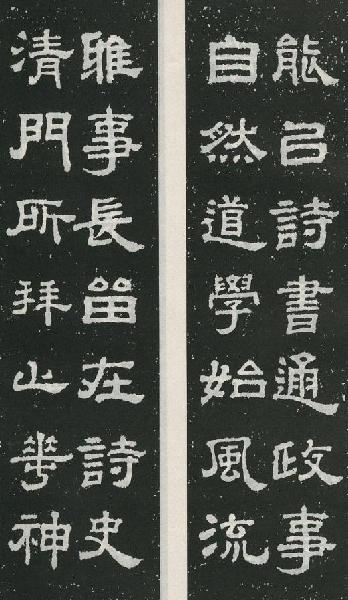 能㠯詩書通政事
自然道學始風流
雅事長畱在詩史
清門所拜止華神